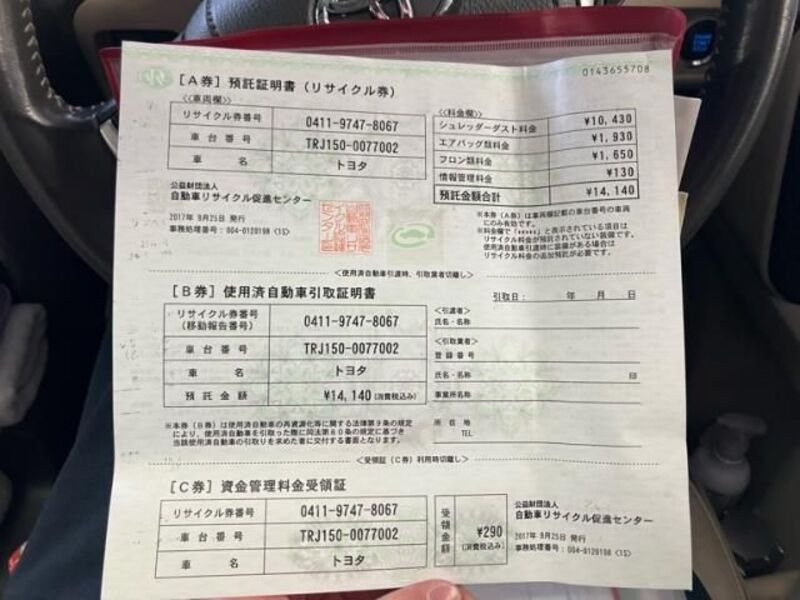 0143655708
[A券] 預託証明書 (リサイクル券)
<<車両欄>>
リサイクル券番号 0411-9747-8067
車台番号 TRJ150-0077002
車名 トヨタ
<<料金欄>>
シュレッダーダスト料金 ¥10,430
エアバッグ類料金 ¥1,930
フロン類料金 ¥1,650
情報管理料金 ¥130
預託金額合計 ¥14,140
公益財団法人
自動車リサイクル促進センター
2017年 9月25日 発行
事務処理番号:004-0120198 <1S>
※本券(A券)は車両欄記載の車台番号の車両
にのみ有効です。
※料金欄で「*****」と表示されている項目は
リサイクル料金が預託されていない装備です。
使用済自動車引渡時に装備がある場合は
リサイクル料金の追加預託が必要です。
<使用済自動車引渡時、引取業者切離し>
[B券] 使用済自動車引取証明書
引取日: 年 月 日
リサイクル券番号
(移動報告番号) 0411-9747-8067
車台番号 TRJ150-0077002
車名 トヨタ
預託金額 ¥14,140(消費税込み)
<引渡者>
氏名・名称
<引取業者>
登録番号
氏名・名称 印
事業所名称
所在地
TEL
※本券(B券)は使用済自動車の再資源化等に関する法律第9条の規定
により、使用済自動車を引取った際に同法第80条の規定に基づき
当該使用済自動車の引取りを求めた者に交付する書面となります。
<受領証(C券)利用時切離し>
[C券] 資金管理料金受領証
リサイクル券番号 0411-9747-8067
車台番号 TRJ150-0077002
車名 トヨタ
受領金額 ¥290
(消費税込み)
公益財団法人
自動車リサイクル促進センター
2017年 9月25日 発行
事務処理番号:004-0120198 <1S>